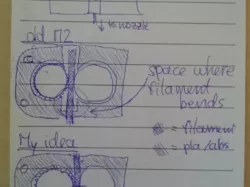 to nozzle
old M2
space where
filament
bends
= filament
= pla/abs.
My idea